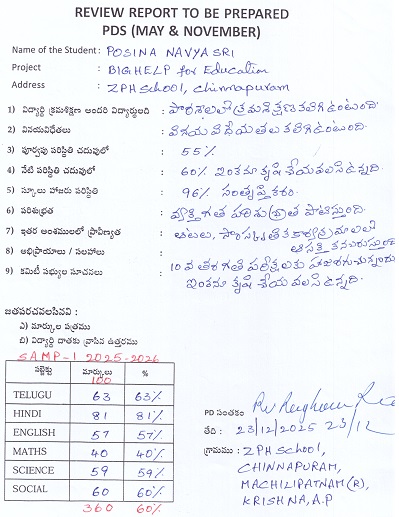 REVIEW REPORT TO BE PREPARED
PDS (MAY & NOVEMBER)
Name of the Student : POSINA NAVYA SRI
Project : BIGHELP for Education
Address : ZPH School, Chinnapuram
1) విద్యార్థి క్రమశిక్షణ అందరి విద్యార్థులతో : పాఠశాలలో క్రమశిక్షణ కలిగి ఉంటుంది.
2) వినయవిధేయతలు : వినయ విధేయతలు కలిగి ఉంటుంది.
3) పూర్వపు పరిస్థితి చదువులో : 55%
4) నేటి పరిస్థితి చదువులో : 60% ఇంకనూ కృషి చేయవలసి ఉన్నది.
5) స్కూలు హాజరు పరిస్థితి : 96% సంతృప్తికరం.
6) పరిశుభ్రత : వ్యక్తిగత పరిశుభ్రత పాటిస్తుంది.
7) ఇతర అంశములలో ప్రావీణ్యత : ఆటలు, సాంస్కృతిక కార్యక్రమాలలో
8) అభిప్రాయాలు / సలహాలు : ఆసక్తి కనబరుస్తుంది
9) కమిటీ సభ్యుల సూచనలు : 10వ తరగతి పరీక్షలకు హాజరగుచున్నందు
ఇంకనూ కృషి చేయవలసి ఉన్నది.
జతపరచవలసినవి :
ఎ) మార్కుల పత్రము
బి) విద్యార్థి దాతకు వ్రాసిన ఉత్తరము
SAMP-1 2025-2026
సబ్జెక్టు మార్కులు %
100
TELUGU 63 63%
HINDI 81 81%
ENGLISH 57 57%
MATHS 40 40%
SCIENCE 59 59%
SOCIAL 60 60%
360 60%
PD సంతకం
23/12
తేది : 23/12/2025
గ్రామము : ZPH School,
CHINNAPURAM,
MACHILIPATNAM (R),
KRISHNA, A.P